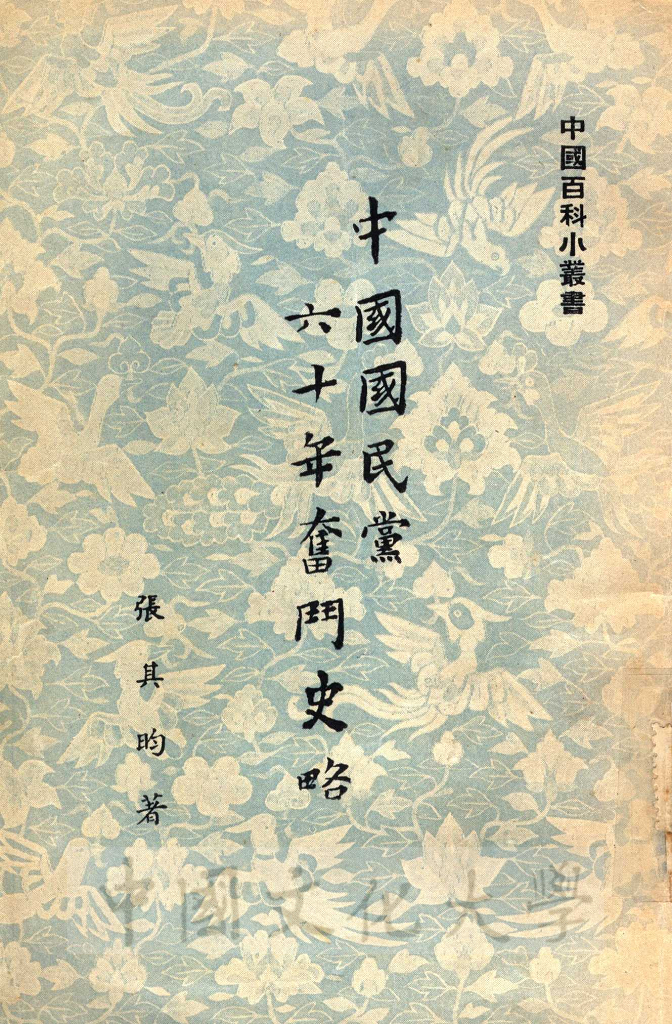 中國百科小叢書
中國國民黨
六十年奮鬥史略
張其昀著
中國文化大學